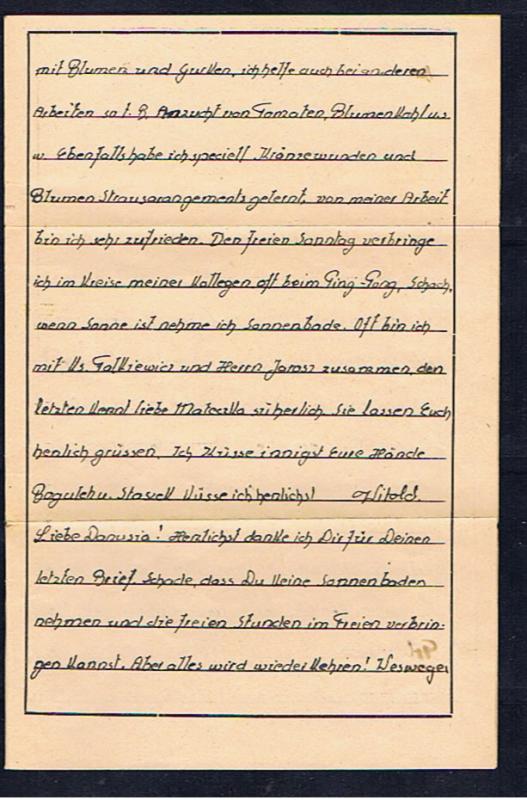 mit Blumen und Gurken, ich helfe auch bei anderen
Arbeiten so z. B. Anzucht von Tomaten, Blumenkohl us
w. Ebenfalls habe ich speciell Kränzewunden und
Blumen Strausarangements gelernt, von meiner Arbeit
bin ich sehr zufrieden. Den freien Sonntag verbringe
ich im Kreise meiner Kollegen oft beim Ping-Pong, Schach,
wenn Sonne ist nehme ich Sonnenbade. Oft bin ich
mit Ks. Falkiewicz und Herrn Jarosz zusammen, den
letzten kennt liebe sicherlich. Sie lassen Euch
herzlich grüssen. Ich küsse innigst Eure Hände
u. küsse ich herzlichst Witold.
Liebe Danusia! Herzlichst danke ich Dir für Deinen
letzten Brief. Schade, dass Du keine Sonnenbaden
nehmen und die freien Stunden im Freien verbrin-
gen kannst. Aber alles wird wieder kehren! Deswegen